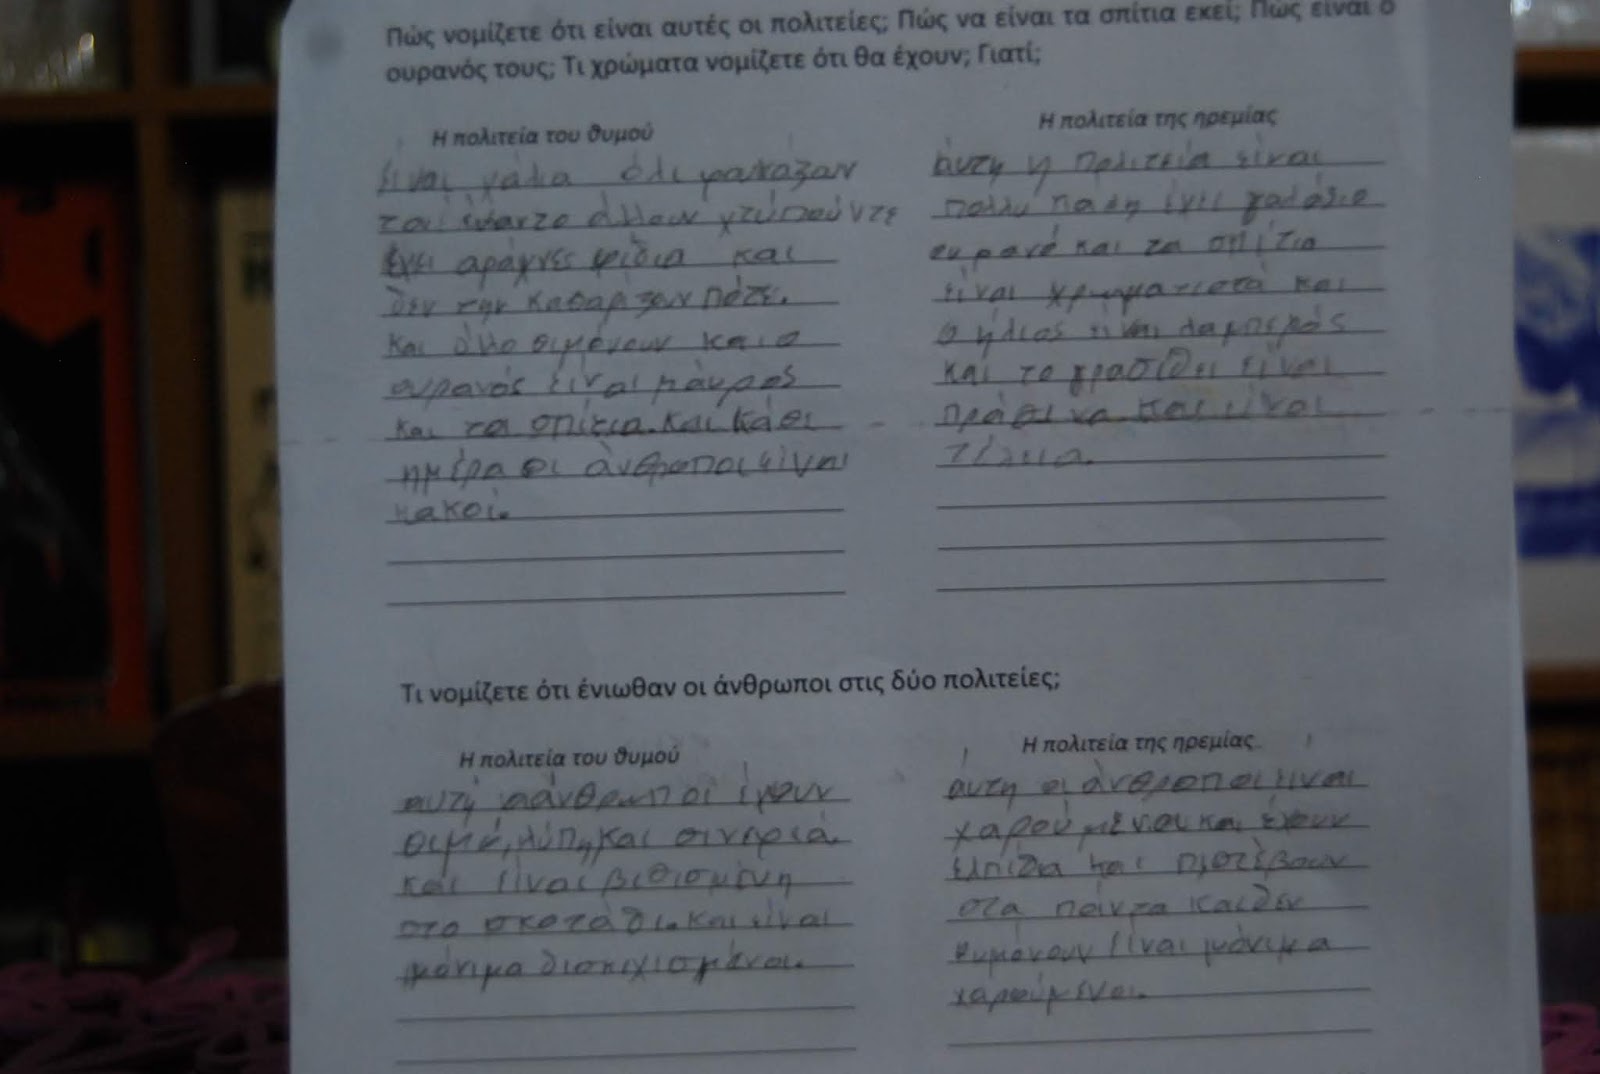 Πώς νομίζετε ότι είναι αυτές οι πολιτείες; Πώς να είναι τα σπίτια εκεί; Πώς είναι ο
ουρανός τους; Τι χρώματα νομίζετε ότι θα έχουν; Γιατί;
Η πολιτεία του θυμού
είναι χάλια όλι
έχει αράχνες φίδια και
δεν την καθαρίζουν πότε.
και όλο θιμόνουν και ο
ουρανός είναι μάυρος
και τα σπίτια. και κάθε
ημέρα οι άνθρωποι είναι
κακοί.
Η πολιτεία της ηρεμίας
άυτη η πολιτεία είναι
πολλυ έχει γαλάζιο
ουρανό και τα σπίτια
είναι χρωματιστά και
ο ήλιος είναι λαμπερός
και το γρασίδι είναι
πράσινα και είναι
τέλεια.
Τι νομίζετε ότι ένιωθαν οι άνθρωποι στις δύο πολιτείες;
Η πολιτεία του θυμού
αυτή οι άνθρωποι έχουν
θιμό, λύπη και
και είναι βιθισμένη
στο σκοτάδι. και είναι
μόνιμα
Η πολιτεία της ηρεμίας
άυτη οι άνθροποι είναι
χαρούμενοι και έχουν
ελπίδα και πιστέβουν
στα πάντα και δεν
θυμόνουν είναι μόνιμα
χαρούμενοι.